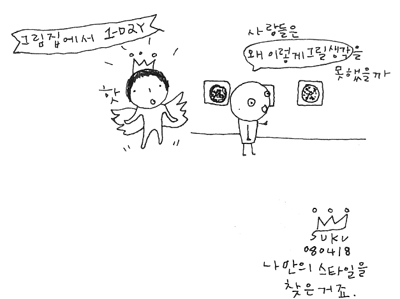 그림집에서 1-DAY
핫
사람들은
왜 이렇게 그릴 생각을
못했을까
SUKU
080418
나만의 스타일을
찾은거죠.